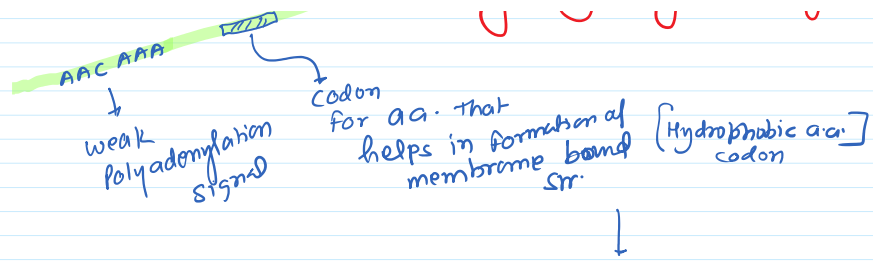 AAC AAA
weak
polyadenylation
signal
codon
for a.a. that
helps in formation of
membrane bound
str.
[Hydrophobic a.a.]
codon